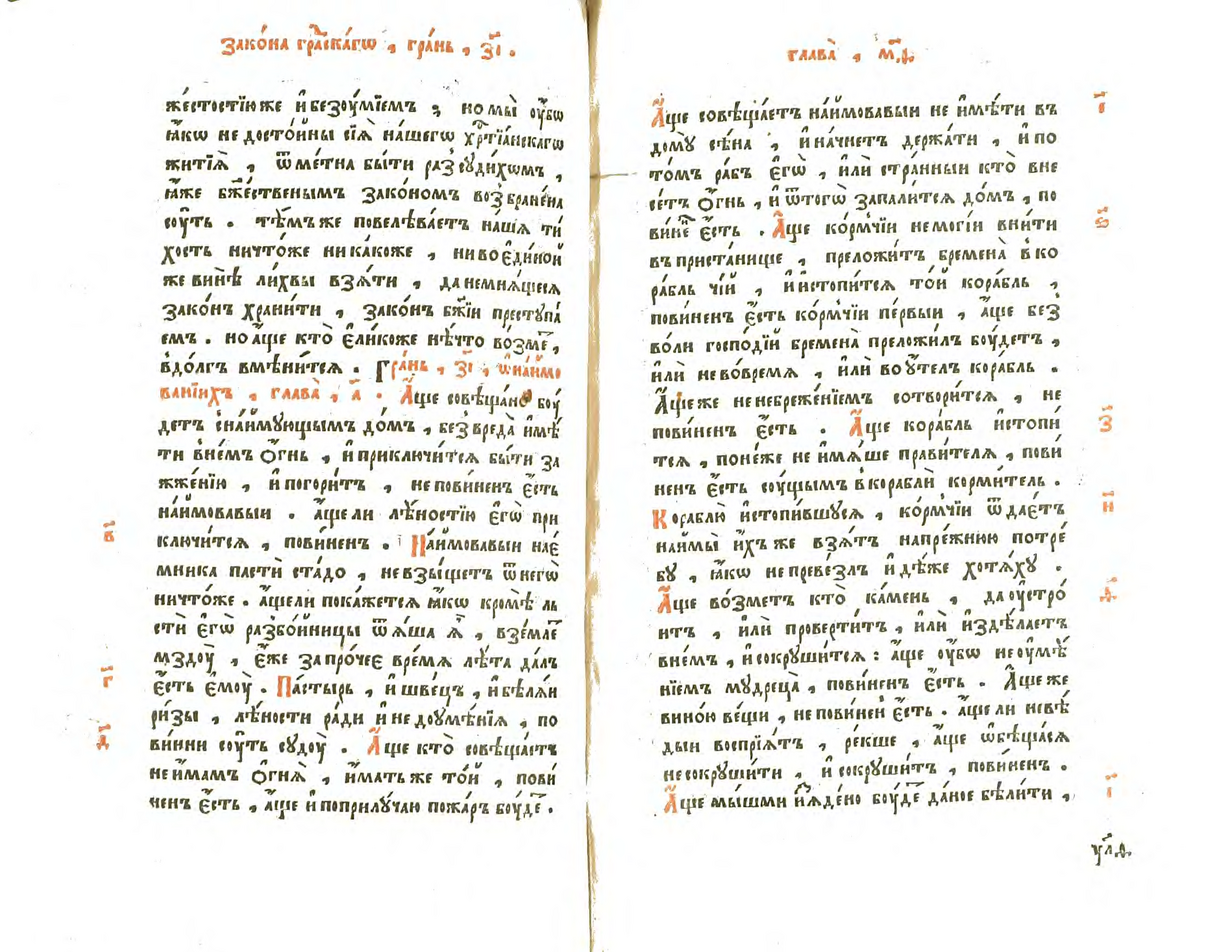 Зако́на гра́дскагѡ , гра́нь , з҃і .
же́стостїю же и҆ безꙋ́мїемъ ; но мы̀ ᲂу҆́бѡ
ꙗ҆́кѡ не досто́йны сїѧ̀ на́шегѡ хр҇тїа́нскагѡ
житїѧ̀ , ѿме́тна бы́ти разсꙋди́хѡмъ ,
ꙗ҆́же бж҃е́ственымъ зако́номъ возбране́на
сꙋ́ть . тѣ́мъ же повелѣва́етъ на́шѧ ти́
хость ничто́же ника́коже , ни во є҆ди́ной
же винѣ̀ ли́хвы взѧ́ти , да не мнѧ́щесѧ
зако́нъ храни́ти , зако́нъ бж҃їи престꙋпа́
емъ . но а҆́ще кто̀ є҆ли́коже нѣ́что во́зме ,
в до́лгъ вмѣни́тсѧ . Гра́нь , з҃і , ѡ҆ наи҆мо
ва́нїихъ , глава̀ , а҃ . А҆́ще совѣща́но бꙋ́
детъ с наи҆мꙋ́ющымъ до́мъ , без вреда̀ и҆мѣ́
ти в не́мъ ѻ҆́гнь , и҆ приключи́тсѧ бы́ти за
жже́нїю , и҆ погори́тъ , не пови́ненъ є҆́сть
наи҆мова́выи . а҆́ще ли лѣ́ностїю є҆гѡ̀ при
ключи́тсѧ , пови́ненъ . Наи҆мова́выи нає́
мника пастѝ ста́до , не взы́щетъ ѿ негѡ̀
ничто́же . а҆́ще ли пока́жетсѧ ꙗ҆́кѡ кро́мѣ ль
стѝ є҆гѡ̀ разбо́йницы ѿѧ́ша ѧ҆̀ , взе́мле
мздꙋ̀ , є҆́же за про́чеє вре́мѧ лѣ́та да́лъ
є҆́сть є҆мꙋ̀ . Па́стырь , и҆ шве́цъ , и҆ бѣлѧ́и
ри́зы , лѣ́ности ра́ди и҆ недоꙋмѣ́нїѧ , по
ви́нни сꙋ́ть сꙋдꙋ̀ . А҆́ще кто̀ совѣща́етъ
не и҆́мамъ ѻ҆гнѧ̀ , и҆́мать же то́й , пови́
ненъ є҆́сть , а҆́ще и҆ по прилꙋ́чаю пожа́ръ бꙋ́де .
в҃
г҃
д҃
глава̀ , м҃ѳ .
А҆́ще совѣща́етъ наи҆мова́выи не и҆мѣ́ти въ
домꙋ̀ сѣ́на , и҆ начне́тъ держа́ти , и҆ по
то́мъ ра́бъ є҆гѡ̀ , и҆лѝ стра́нныи кто̀ вне
се́тъ ѻ҆́гнь , и҆ ѿтогѡ̀ запали́тсѧ до́мъ , по
ви́не є҆́сть . А҆́ще ко́рмчїи не могі́и вни́ти
въ приста́нище , преложи́тъ бремена̀ в ко
ра́бль чі́й , и҆ и҆стопи́тсѧ то́й кора́бль ,
пови́ненъ є҆́сть ко́рмчїи пе́рвыи , а҆́ще без
во́ли господі́й бремена̀ преложи́лъ бꙋ́детъ ,
и҆лѝ не во́времѧ , и҆лѝ во ᲂу҆́телъ кора́бль .
А҆́ще же не небреже́нїемъ сотвори́тсѧ , не
пови́ненъ є҆́сть . А҆́ще кора́бль и҆стопи́
тсѧ , поне́же не и҆мѧ́ше прави́телѧ , пови́
ненъ є҆́сть сꙋ́щымъ в кораблѝ корми́тель .
Кораблю̀ и҆стопи́вшꙋсѧ , ко́рмчїи ѿдає́тъ
наи҆мы̀ и҆́хъ же взѧ́тъ напре́жнюю потре́
бꙋ , ꙗ҆́кѡ не преве́злъ и҆дѣ́же хотѧ́хꙋ .
А҆́ще во́зметъ кто̀ ка́мень , да ᲂу҆стро́
итъ , и҆лѝ проверти́тъ , и҆лѝ и҆здѣ́лаетъ
в не́мъ , и҆ сокрꙋши́тсѧ : а҆́ще ᲂу҆́бѡ не ᲂу҆мѣ́
нїемъ мꙋдреца̀ , пови́ненъ є҆́сть . А҆́ще же
вино́ю ве́щи , не пови́нен є҆́сть . а҆́ще ли невѣ́
дыи воспрїѧ́тъ , ре́кше , а҆́ще ѡ҆бѣща́сѧ
не сокрꙋши́ти , и҆ сокрꙋши́тъ , пови́ненъ .
А҆́ще мы́шми и҆з̾ѧ́дено бꙋ́де да́ное бѣли́ти ,
з҃
и҃
ѳ҃
і҃
ᲂу҆л҃ѳ.